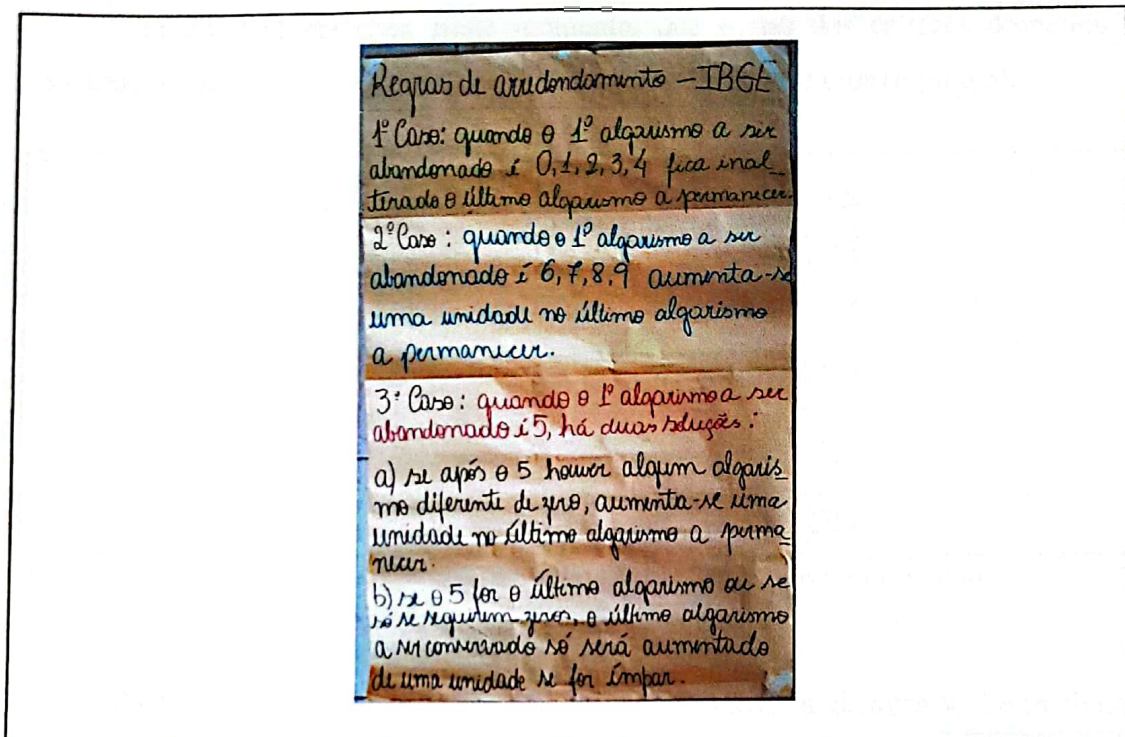 Regras de arredondamento - IBGE
1º Caso: quando o 1º algarismo a ser
abandonado é 0, 1, 2, 3, 4 fica inal_
terado o último algarismo a permanecer.
2º Caso: quando o 1º algarismo a ser
abandonado é 6, 7, 8, 9 aumenta-se
uma unidade no último algarismo
a permanecer.
3º Caso: quando o 1º algarismo a ser
abandonado é 5, há duas soluções:
a) se após o 5 houver algum algaris_
mo diferente de zero, aumenta-se uma
unidade no último algarismo a perma_
necer.
b) se o 5 for o último algarismo ou se
só se seguirem zeros, o último algarismo
a ser conservado só será aumentado
de uma unidade se for ímpar.